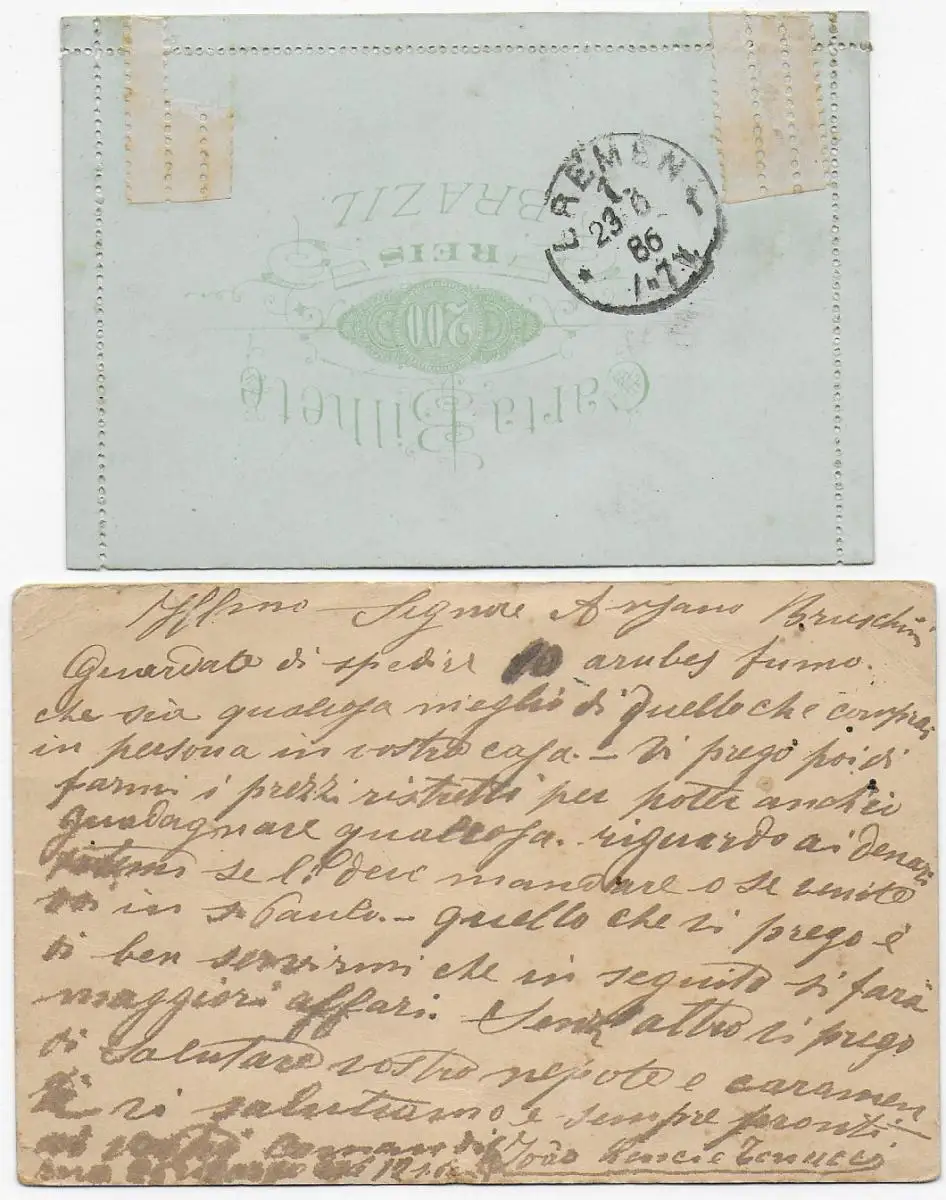 BREMEN 1
1
23 6
86
1-7 V.
*
BRAZIL
REIS
200
Carta Bilhete
Illmo Signore Bruschini
Guardate di spedire 10 arubes fumo.
che sia qualcosa meglio di quello che comprai
in persona in vostra casa. – Vi prego poi di
farmi i prezzi ristretti per poter anch'io
guadagnare qualcosa. riguardo ai denari
se li devo mandare o se venite
voi in S. Paulo. – quello che vi prego è
di ben servirmi che in seguito si farà
maggiori affari. Senz altro vi prego
di salutare vostro nepote e caramen
te vi salutiamo e sempre pronti
ai vostri comandi
João